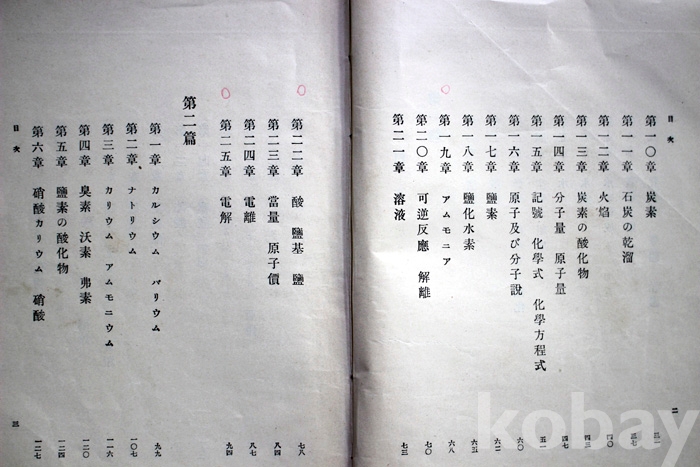 目次
第一〇章 炭素 三一
第一一章 石炭の乾溜 三七
第一二章 火焰 四〇
第一三章 炭素の酸化物 四三
第一四章 分子量 原子量 四七
第一五章 記號 化學式 化學方程式 五一
第一六章 原子及び分子說 六〇
第一七章 鹽素 六二
第一八章 鹽化水素 六三
第一九章 アムモニア 六八
第二〇章 可逆反應 解離 七〇
第二一章 溶液 七三
二
第二二章 酸 鹽基 鹽 七八
第二三章 當量 原子價 八四
第二四章 電離 八七
第二五章 電解 九四
第二篇
第一章 カルシウム バリウム 九九
第二章 ナトリウム 一〇七
第三章 カリウム アムモニウム 一一六
第四章 臭素 沃素 弗素 一二〇
第五章 鹽素の酸化物 一二四
第六章 硝酸カリウム 硝酸 一二七
目次
三
kobay